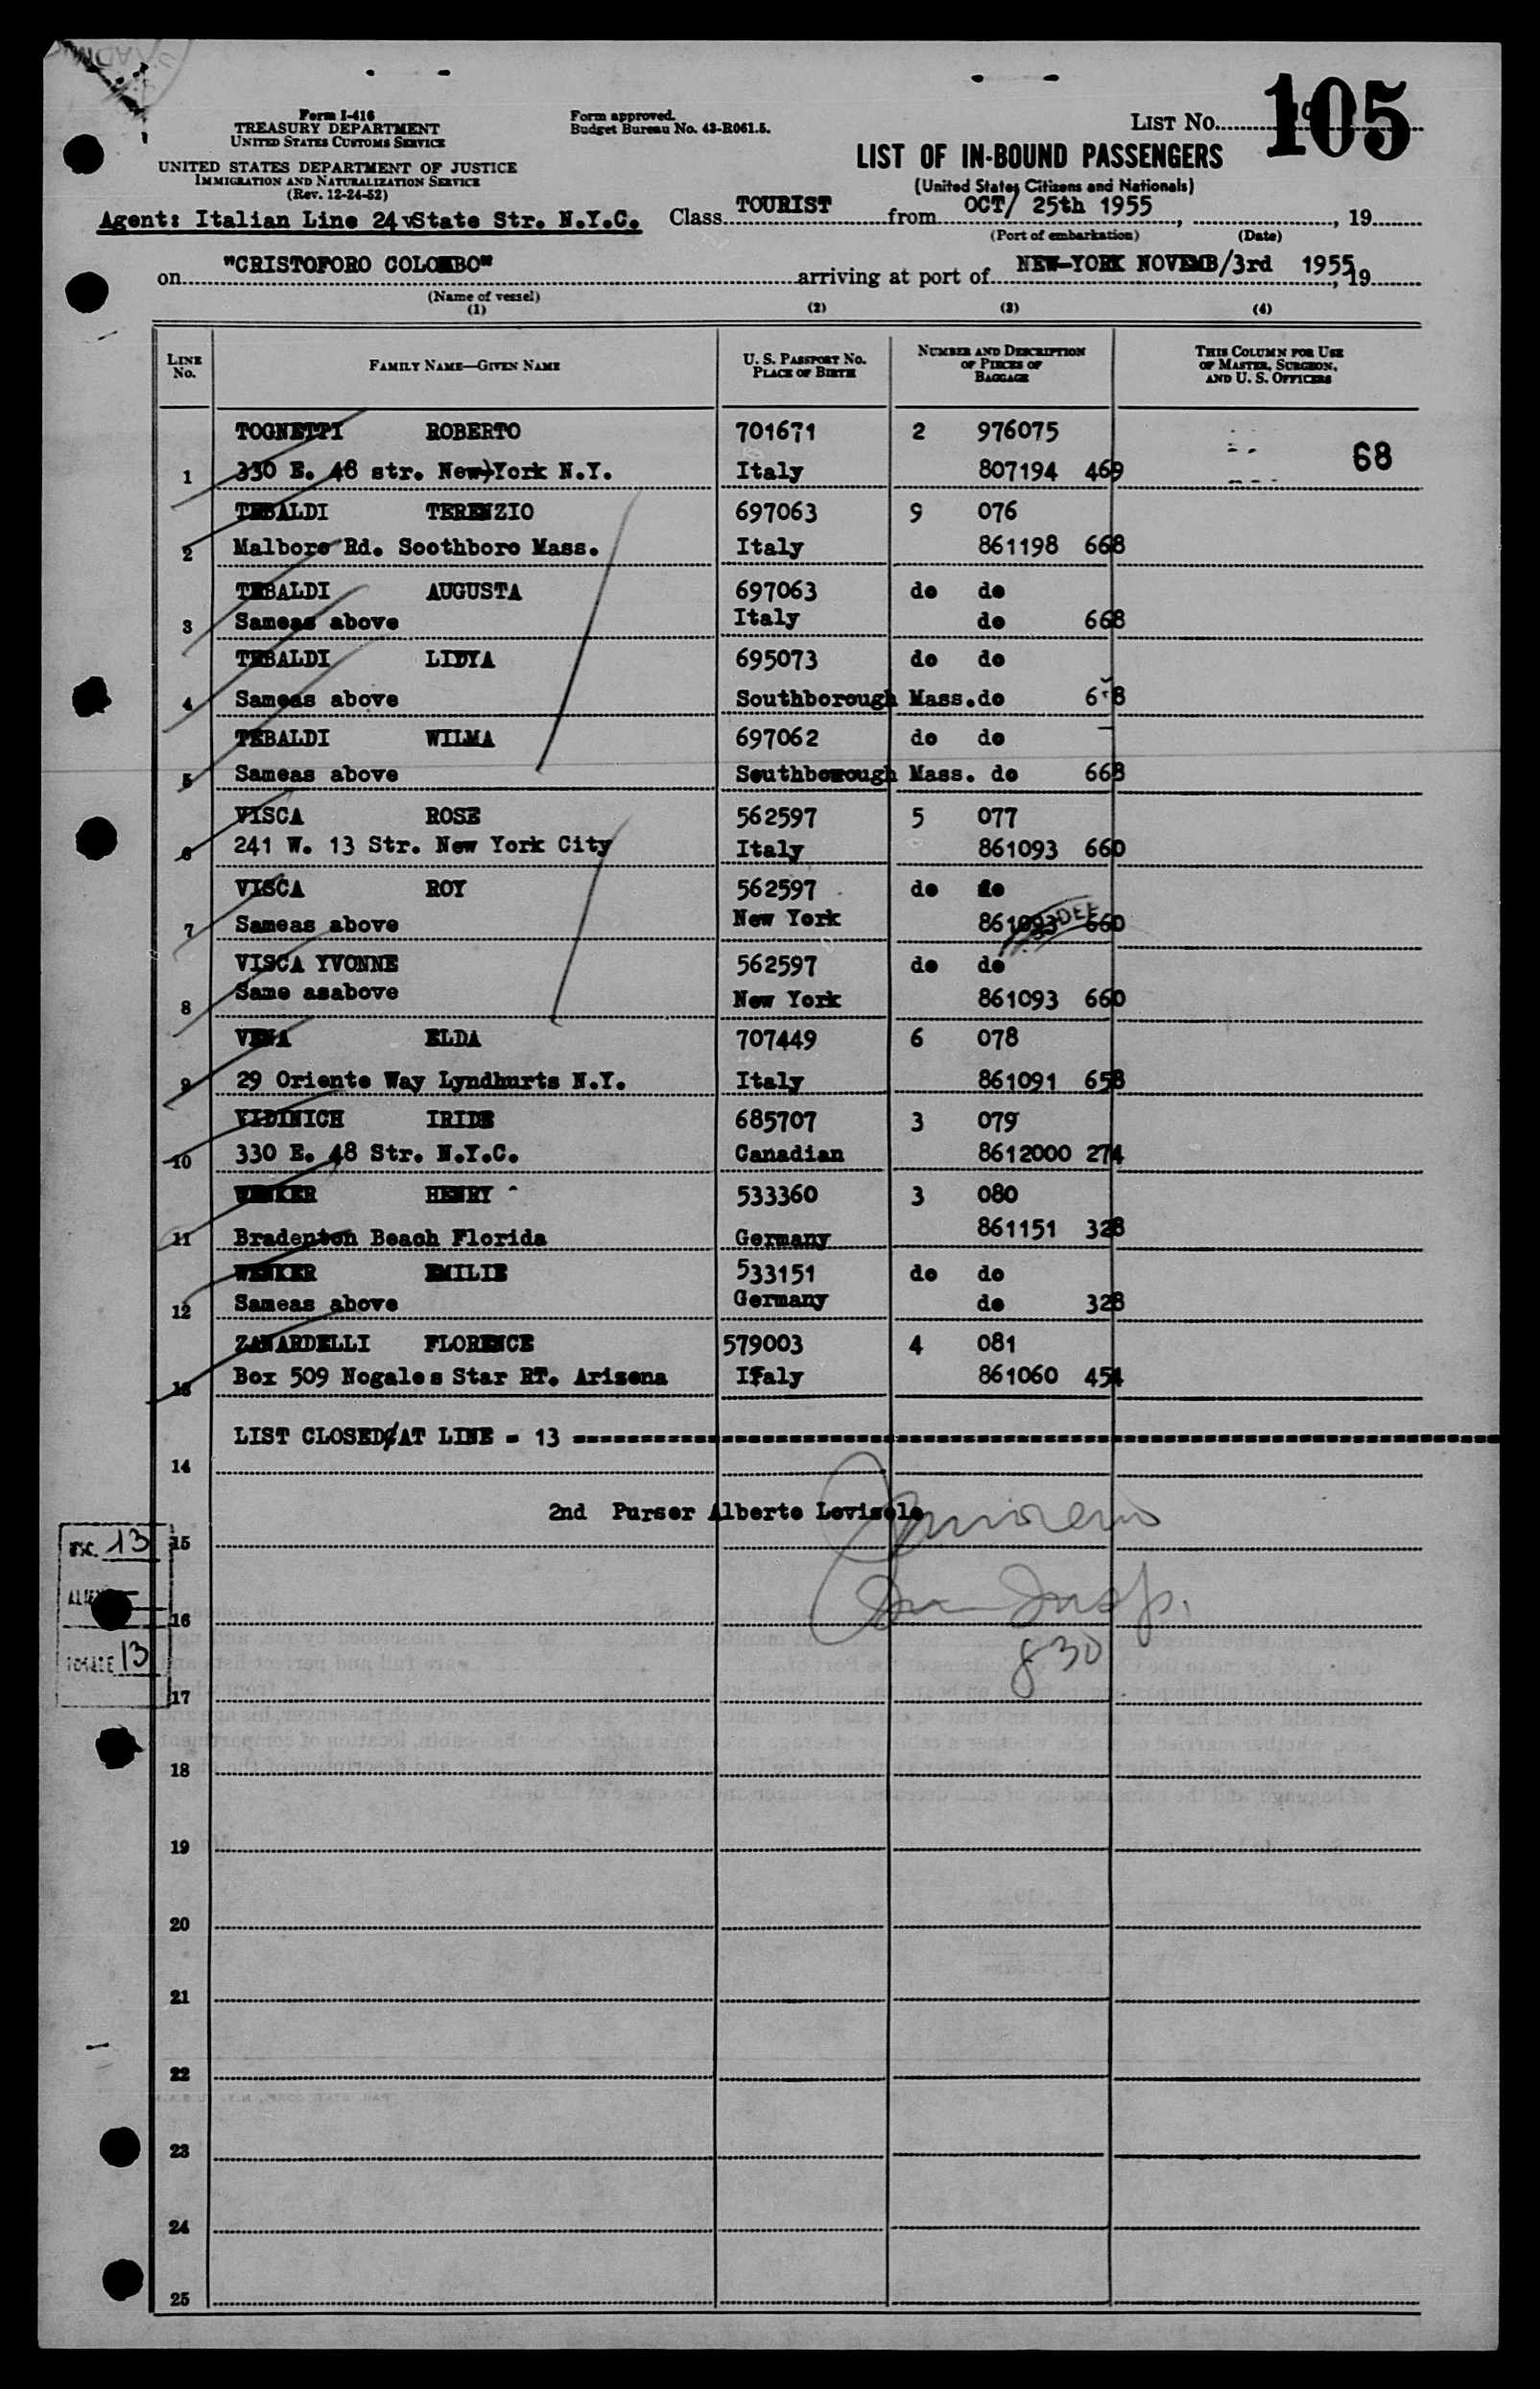 Form I-416
TREASURY DEPARTMENT
UNITED STATES CUSTOMS SERVICE
UNITED STATES DEPARTMENT OF JUSTICE
IMMIGRATION AND NATURALIZATION SERVICE
(Rev. 12-24-52)
Form approved.
Budget Bureau No. 43-R061.5.
LIST NO. 105
LIST OF IN-BOUND PASSENGERS
(United States Citizens and Nationals)
Agent: Italian Line 24 State Str. N.Y.C. Class TOURIST from OCT/ 25th 1955, , 19
(Port of embarkation) (Date)
on "CRISTOFORO COLOMBO" arriving at port of NEW-YORK NOVEMB/3rd 1955, 19
(Name of vessel)
(1) (2) (3) (4)
LINE No. FAMILY NAME—GIVEN NAME U. S. PASSPORT NO. PLACE OF BIRTH NUMBER AND DESCRIPTION OF PIECES OF BAGGAGE THIS COLUMN FOR USE OF MASTER, SURGEON, AND U. S. OFFICERS
TOGNETTI ROBERTO 701671 2 976075 68
1 330 E. 48 str. New)York N.Y. Italy 807194 469
TEBALDI TERENZIO 697063 9 076
2 Malboro Rd. Soothboro Mass. Italy 861198 668
TEBALDI AUGUSTA 697063 do do
3 Sameas above Italy do 668
TEBALDI LIDYA 695073 do do
4 Sameas above Southborough Mass.do 668
TEBALDI WILMA 697062 do do
5 Sameas above Southborough Mass. do 668
VISCA ROSE 562597 5 077
6 241 W. 13 Str. New York City Italy 861093 660
VISCA ROY 562597 do do
7 Sameas above New York 861093 660
VISCA YVONNE 562597 do do
8 Same asabove New York 861093 660
VENA ELDA 707449 6 078
9 29 Oriente Way Lyndhurts N.Y. Italy 861091 658
VIDINICH IRIDE 685707 3 079
10 330 E. 48 Str. N.Y.C. Canadian 8612000 274
WENKER HENRY 533360 3 080
11 Bradenton Beach Florida Germany 861151 328
WENKER EMILIE 533151 do do
12 Sameas above Germany do 328
ZANARDELLI FLORENCE 579003 4 081
13 Box 509 Nogales Star RT. Arizona Italy 861060 454
LIST CLOSED AT LINE = 13
14
2nd Purser Alberto Levisolo
USC. 13 15
ALIEN 16
Insp.
830
TOTALE 13
17
18
19
20
21
22
23
24
25